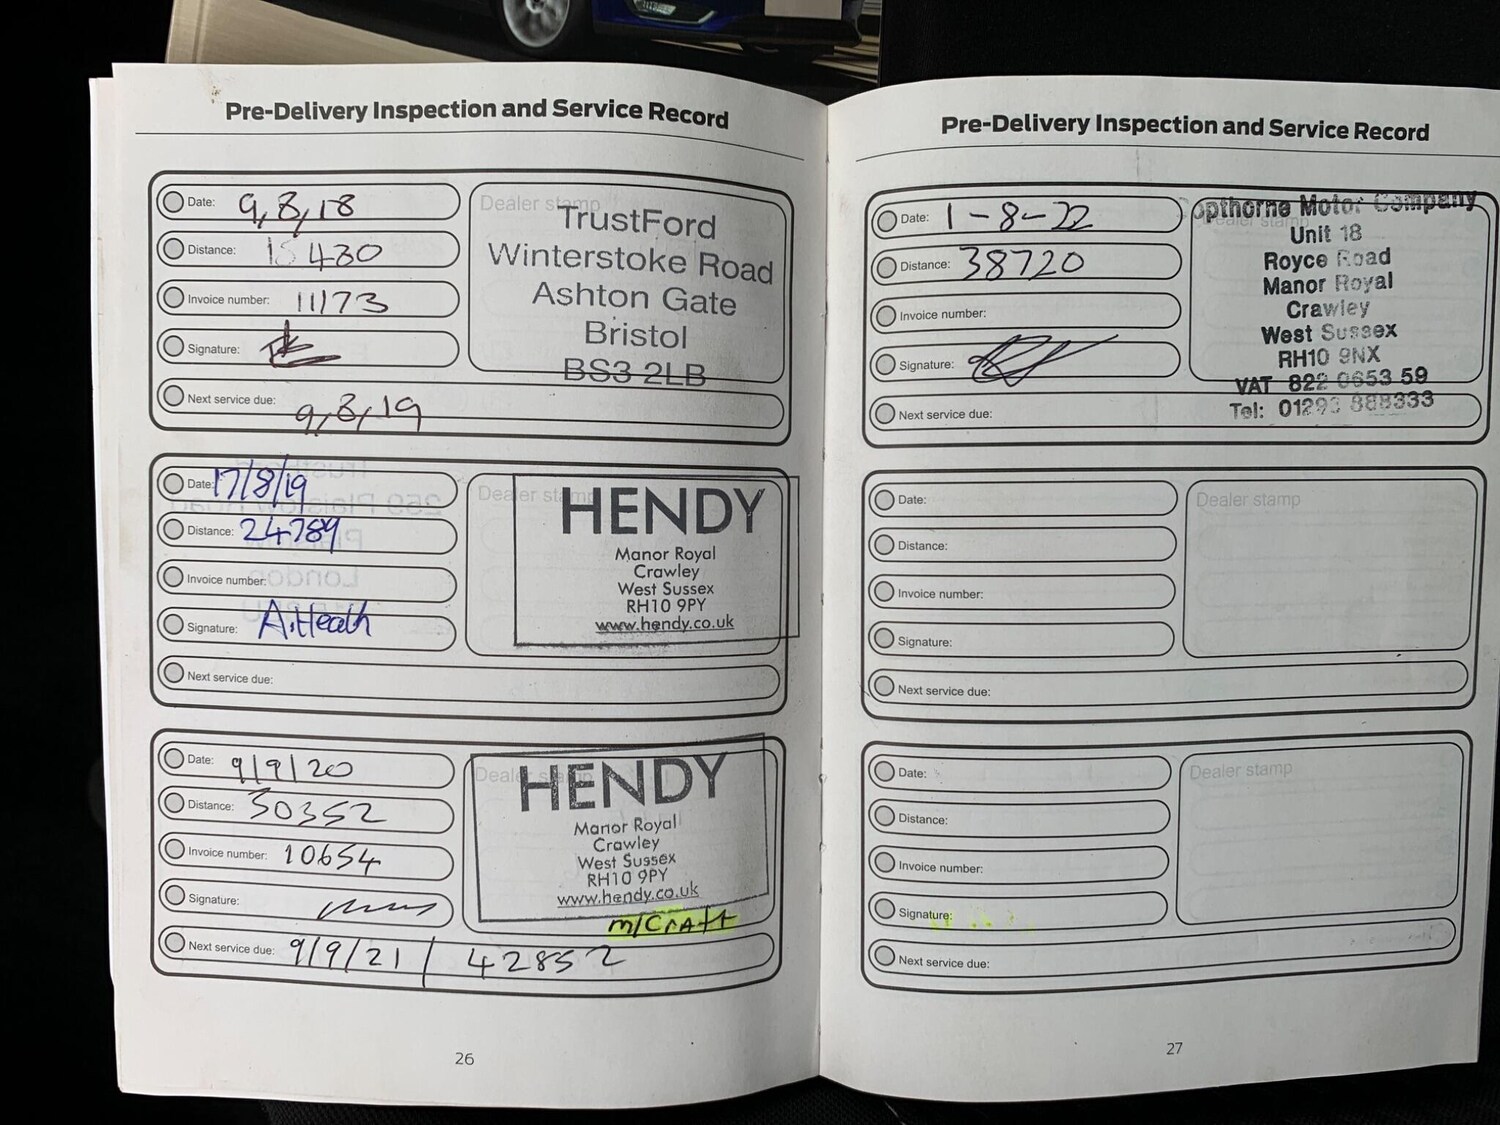 Pre-Delivery Inspection and Service Record
Date: 9,8,18
Distance: 15 430
Invoice number: 11173
Signature:
Next service due: 9,8,19
Dealer stamp
TrustFord
Winterstoke Road
Ashton Gate
Bristol
BS3 2LB
Date: 17/8/19
Distance: 24789
Invoice number:
Signature: A.Heath
Next service due:
Dealer stamp
HENDY
Manor Royal
Crawley
West Sussex
RH10 9PY
www.hendy.co.uk
Date: 9/9/20
Distance: 30352
Invoice number: 10654
Signature:
Next service due: 9/9/21 / 42852
Dealer stamp
HENDY
Manor Royal
Crawley
West Sussex
RH10 9PY
www.hendy.co.uk
m/Craft
26
Pre-Delivery Inspection and Service Record
Date: 1-8-22
Distance: 38720
Invoice number:
Signature:
Next service due:
Dealer stamp
opthorne Motor Company
Unit 18
Royce Road
Manor Royal
Crawley
West Sussex
RH10 9NX
VAT 822 0653 59
Tel: 01293 888333
Date:
Distance:
Invoice number:
Signature:
Next service due:
Dealer stamp
Date:
Distance:
Invoice number:
Signature:
Next service due:
Dealer stamp
27